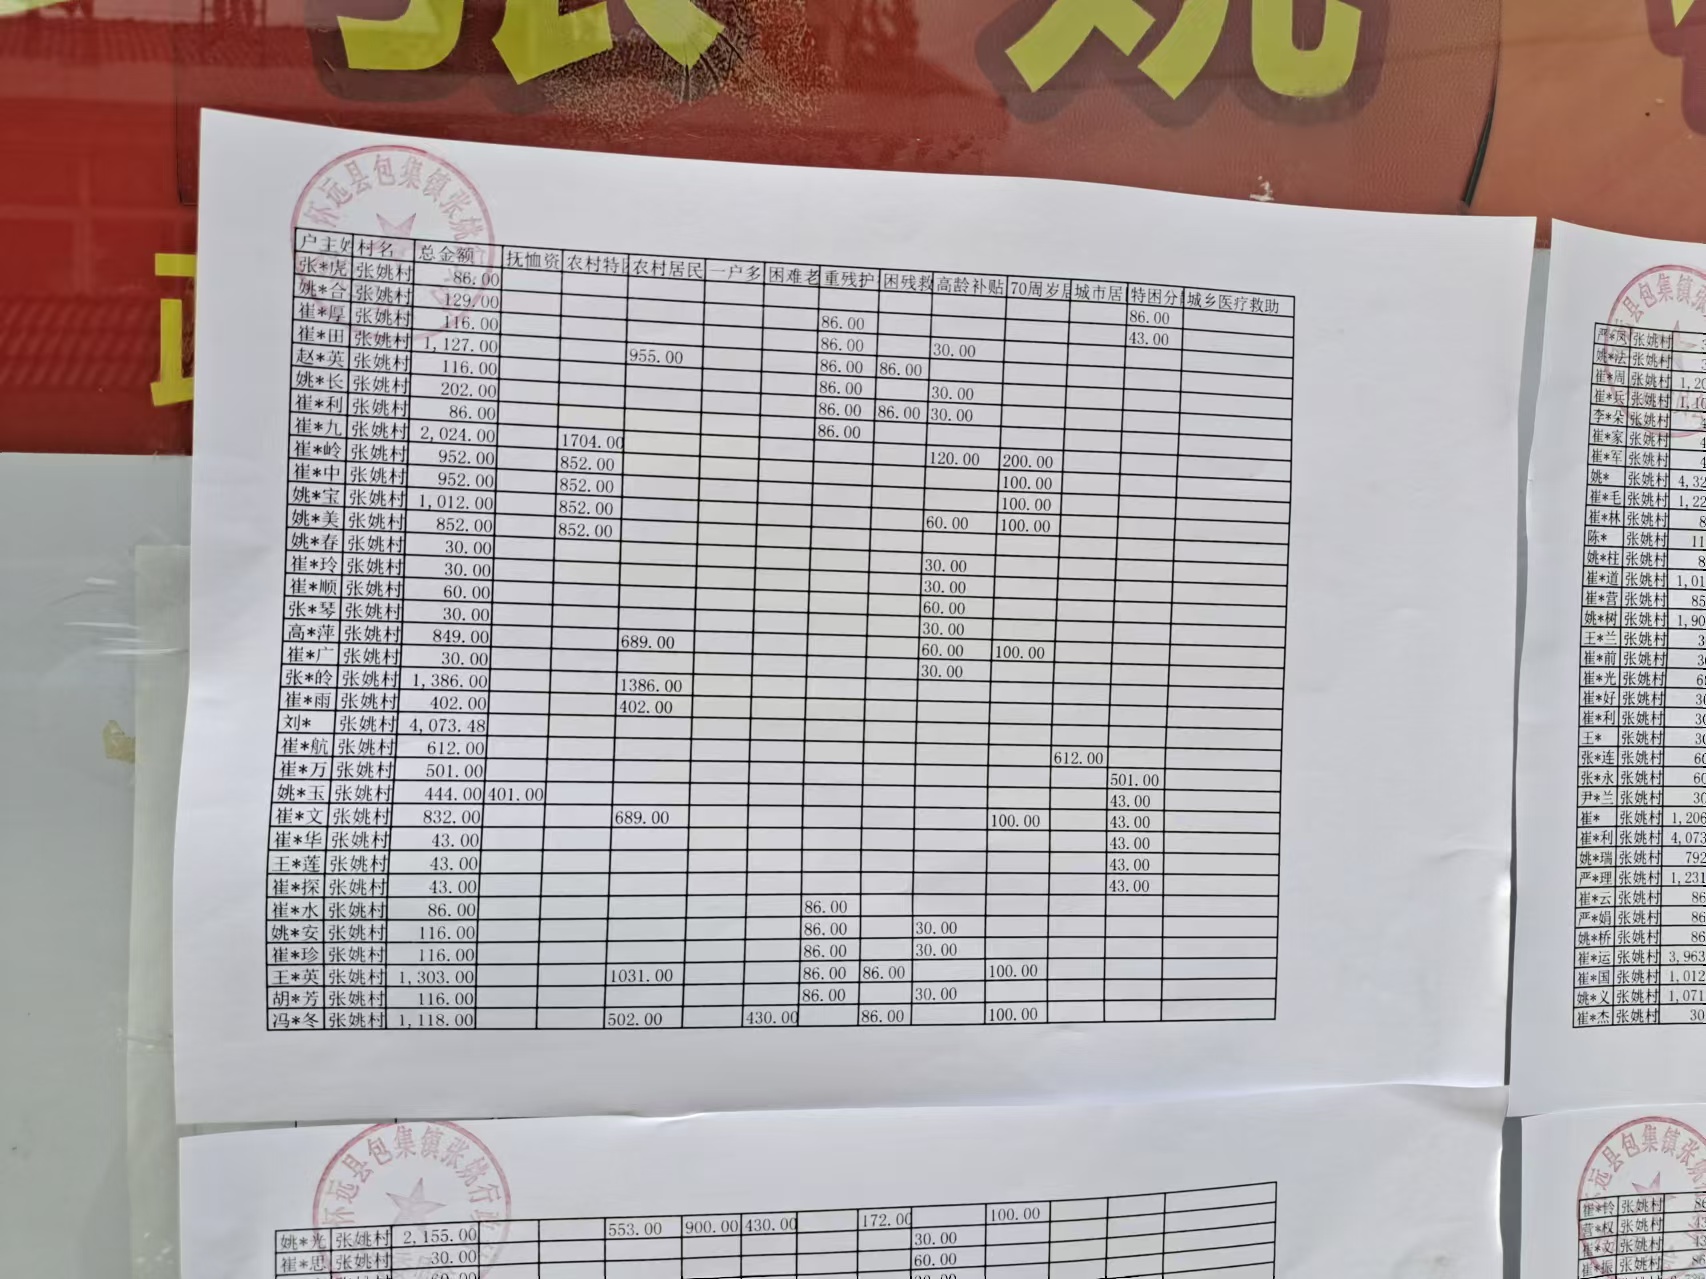 张姚
怀远县包集镇张姚行
户主姓 村名 总金额 抚恤资 农村特 农村居民 一户多 困难老 重残护 困残救 高龄补贴 70周岁 城市居 特困分 城乡医疗救助
张*虎 张姚村 86.00 86.00
姚*合 张姚村 129.00 86.00 43.00
崔*厚 张姚村 116.00 86.00 30.00
崔*田 张姚村 1,127.00 955.00 86.00 86.00
赵*英 张姚村 116.00 86.00 30.00
姚*长 张姚村 202.00 86.00 86.00 30.00
崔*利 张姚村 86.00 86.00
崔*九 张姚村 2,024.00 1704.00 120.00 200.00
崔*岭 张姚村 952.00 852.00 100.00
崔*中 张姚村 952.00 852.00 100.00
姚*宝 张姚村 1,012.00 852.00 60.00 100.00
姚*美 张姚村 852.00 852.00
姚*春 张姚村 30.00 30.00
崔*玲 张姚村 30.00 30.00
崔*顺 张姚村 60.00 60.00
张*琴 张姚村 30.00 30.00
高*萍 张姚村 849.00 689.00 60.00 100.00
崔*广 张姚村 30.00 30.00
张* 张姚村 1,386.00 1386.00
崔*雨 张姚村 402.00 402.00
刘* 张姚村 4,073.48
崔*航 张姚村 612.00 612.00
崔*万 张姚村 501.00 501.00
姚*玉 张姚村 444.00 401.00 43.00
崔*文 张姚村 832.00 689.00 100.00 43.00
崔*华 张姚村 43.00 43.00
王*莲 张姚村 43.00 43.00
崔*探 张姚村 43.00 43.00
崔*水 张姚村 86.00 86.00
姚*安 张姚村 116.00 86.00 30.00
崔*珍 张姚村 116.00 86.00 30.00
王*英 张姚村 1,303.00 1031.00 86.00 86.00 100.00
胡*芳 张姚村 116.00 86.00 30.00
冯*冬 张姚村 1,118.00 502.00 430.00 86.00 100.00
怀远县包集镇张姚行
姚*光 张姚村 2,155.00 553.00 900.00 430.00 172.00 100.00
崔*思 张姚村 30.00 30.00
60.00
怀远县包集镇张
严*凤 张姚村
姚*法 张姚村
崔*周 张姚村 1,20
崔*兵 张姚村 1,10
李*朵 张姚村
崔*家 张姚村
崔*军 张姚村
姚* 张姚村 4,32
崔*毛 张姚村 1,22
崔*林 张姚村 8
陈* 张姚村 11
姚*柱 张姚村 8
崔*道 张姚村 1,01
崔*营 张姚村 85
姚*树 张姚村 1,90
王*兰 张姚村 3
崔*前 张姚村 30
崔*光 张姚村 68
崔*好 张姚村 30
崔*利 张姚村 30
王* 张姚村 30
张*连 张姚村 60
张*永 张姚村 60
尹*兰 张姚村 30
崔* 张姚村 1,206
崔*利 张姚村 4,073
姚*瑞 张姚村 792
严*理 张姚村 1,231
崔*云 张姚村 86
严*娟 张姚村 86
姚*桥 张姚村 86
崔*运 张姚村 3,963
崔*国 张姚村 1,012
姚*义 张姚村 1,071
崔*杰 张姚村 30
远县包集镇张
崔*铃 张姚村
营*权 张姚村
崔*文 张姚村
崔*振 张姚村